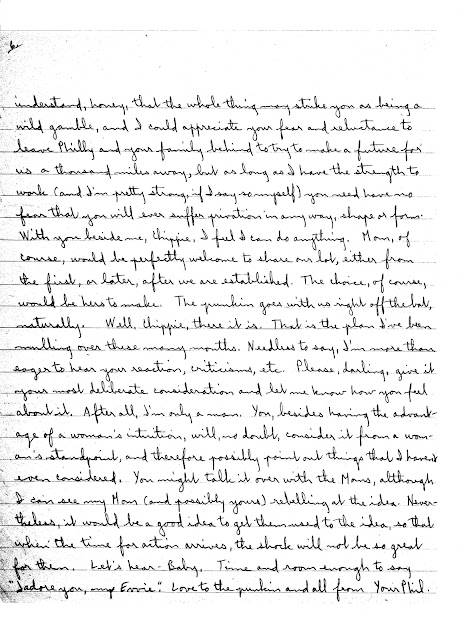 6.
understand, honey, that the whole thing may strike you as being a
wild gamble, and I could appreciate your fear and reluctance to
leave Philly and your family behind to try to make a future for
us a thousand miles away, but as long as I have the strength to
work (and I'm pretty strong, if I say so myself) you need have no
fear that you will ever suffer privation in any way, shape or form.
With you beside me, Chippie, I feel I can do anything. Mom, of
course, would be perfectly welcome to share our lot, either from
the first, or later, after we are established. The choice, of course,
would be hers to make. The punkin goes with us right off the bat,
naturally. Well, Chippie, there it is. That is the plan I've been
mulling over these many months. Needless to say, I'm more than
eager to hear your reaction, criticisms, etc. Please, darling, give it
your most deliberate consideration and let me know how you feel
about it. After all, I'm only a man. You, besides having the advant-
age of a woman's intuition, will, no doubt, consider it from a wom-
an's standpoint, and therefore possibly point out things that I haven't
even considered. You might talk it over with the Moms, although
I can see my Mom (and possibly yours) rebelling at the idea. Never-
theless, it would be a good idea to get them used to the idea, so that
when the time for action arrives, the shock will not be so great
for them. Let's hear - Baby. Time and room enough to say
"I adore you, my Evvie". Love to the punkin and all from Your Phil.